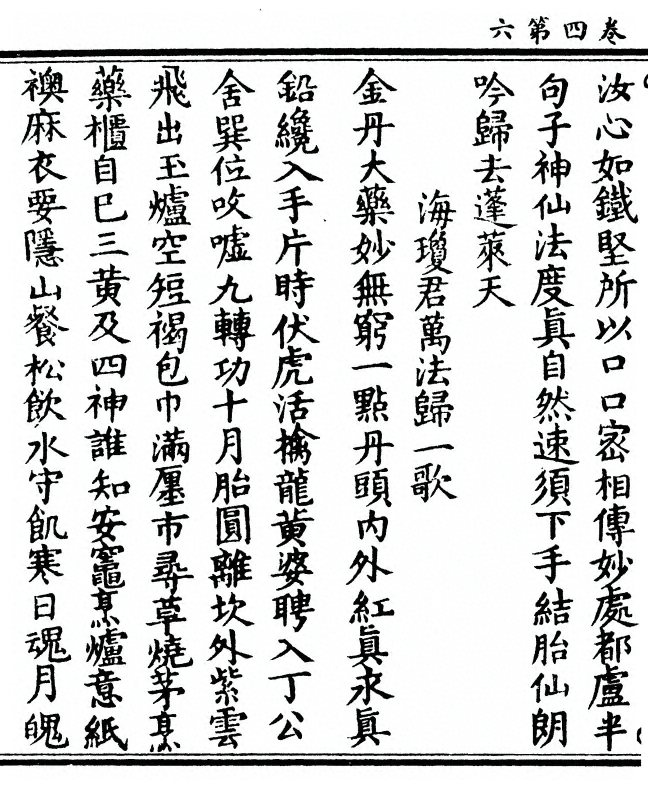 卷四第六
汝心如鐵堅所以口口密相傳妙處都盧半
句子神仙法度眞自然速須下手結胎仙朗
吟歸去蓬萊天
海瓊君萬法歸一歌
金丹大藥妙無窮一點丹頭內外紅眞永眞
鉛纔入手片時伏虎活擒龍黃婆聘入丁公
舍巽位吹噓九轉功十月胎圓離坎外紫雲
飛出玉爐空短褐包巾滿廛市尋草燒茅烹
藥櫃自巳三黃及四神誰知安竈烹爐意紙
襖麻衣要隱山餐松飲水守飢寒日魂月魄